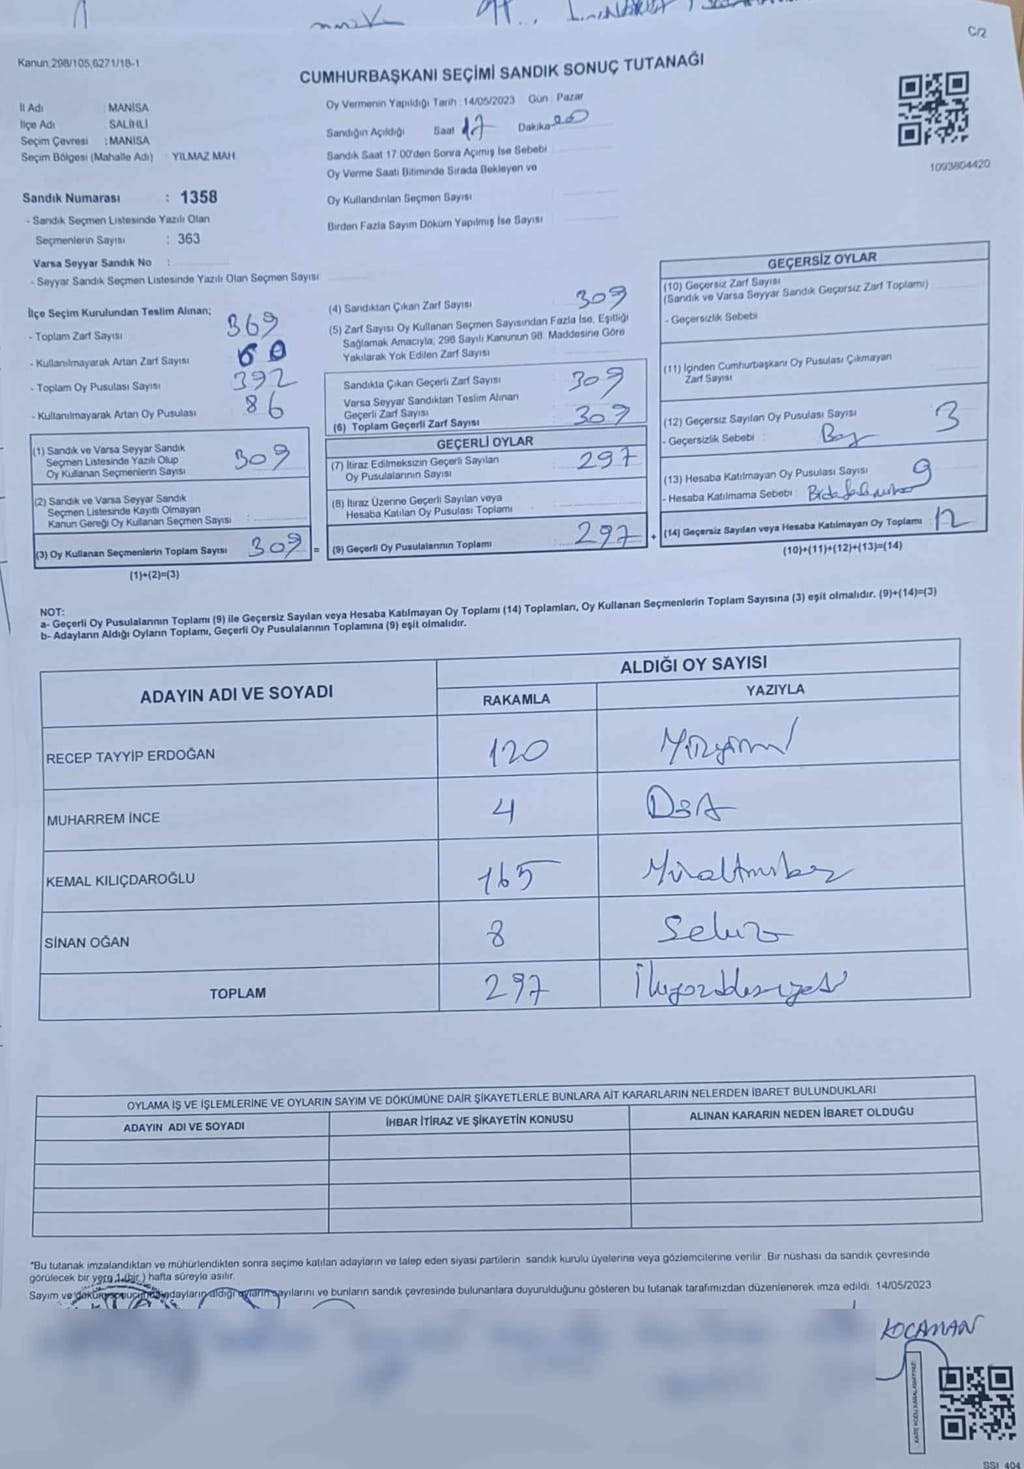 C/2
Kanun,298/105,6271/18-1
CUMHURBAŞKANI SEÇİMİ SANDIK SONUÇ TUTANAĞI
İl Adı : MANİSA
İlçe Adı : SALİHLİ
Seçim Çevresi : MANİSA
Seçim Bölgesi (Mahalle Adı) : YILMAZ MAH.
Oy Vermenin Yapıldığı Tarih : 14/05/2023 Gün : Pazar
Sandığın Açıldığı Saat 17 Dakika 00
Sandık Saat 17.00'den Sonra Açımış İse Sebebi
Oy Verme Saati Bitiminde Sırada Bekleyen ve
Oy Kullandırılan Seçmen Sayısı
Birden Fazla Sayım Döküm Yapılmış İse Sayısı
1093804420
Sandık Numarası : 1358
- Sandık Seçmen Listesinde Yazılı Olan
Seçmenlerin Sayısı : 363
Varsa Seyyar Sandık No :
- Seyyar Sandık Seçmen Listesinde Yazılı Olan Seçmen Sayısı
İlçe Seçim Kurulundan Teslim Alınan;
- Toplam Zarf Sayısı 369
- Kullanılmayarak Artan Zarf Sayısı 60
- Toplam Oy Pusulası Sayısı 392
- Kullanılmayarak Artan Oy Pusulası 86
(1) Sandık ve Varsa Seyyar Sandık
Seçmen Listesinde Yazılı Olup
Oy Kullanan Seçmenlerin Sayısı 309
(2) Sandık ve Varsa Seyyar Sandık
Seçmen Listesinde Kayıtlı Olmayan
Kanun Gereği Oy Kullanan Seçmen Sayısı
(3) Oy Kullanan Seçmenlerin Toplam Sayısı 309 =
(1)+(2)=(3)
(4) Sandıktan Çıkan Zarf Sayısı 309
(5) Zarf Sayısı Oy Kullanan Seçmen Sayısından Fazla İse, Eşitliği
Sağlamak Amacıyla, 298 Sayılı Kanunun 98. Maddesine Göre
Yakılarak Yok Edilen Zarf Sayısı
Sandıkta Çıkan Geçerli Zarf Sayısı 309
Varsa Seyyar Sandıktan Teslim Alınan
Geçerli Zarf Sayısı
(6) Toplam Geçerli Zarf Sayısı 309
GEÇERLİ OYLAR
(7) İtiraz Edilmeksizin Geçerli Sayılan
Oy Pusulalarının Sayısı 297
(8) İtiraz Üzerine Geçerli Sayılan veya
Hesaba Katılan Oy Pusulası Toplamı
(9) Geçerli Oy Pusulalarının Toplamı 297 +
GEÇERSİZ OYLAR
(10) Geçersiz Zarf Sayısı
(Sandık ve Varsa Seyyar Sandık Geçersiz Zarf Toplamı)
- Geçersizlik Sebebi
(11) İçinden Cumhurbaşkanı Oy Pusulası Çıkmayan
Zarf Sayısı
(12) Geçersiz Sayılan Oy Pusulası Sayısı 3
- Geçersizlik Sebebi : Boş
(13) Hesaba Katılmayan Oy Pusulası Sayısı 9
- Hesaba Katılmama Sebebi :
(14) Geçersiz Sayılan veya Hesaba Katılmayan Oy Toplamı 12
(10)+(11)+(12)+(13)=(14)
NOT:
a- Geçerli Oy Pusulalarının Toplamı (9) ile Geçersiz Sayılan veya Hesaba Katılmayan Oy Toplamı (14) Toplamları, Oy Kullanan Seçmenlerin Toplam Sayısına (3) eşit olmalıdır. (9)+(14)=(3)
b- Adayların Aldığı Oyların Toplamı, Geçerli Oy Pusulalarının Toplamına (9) eşit olmalıdır.
ADAYIN ADI VE SOYADI
ALDIĞI OY SAYISI
RAKAMLA YAZIYLA
RECEP TAYYİP ERDOĞAN 120 Yüzyirmi
MUHARREM İNCE 4 Dört
KEMAL KILIÇDAROĞLU 165 Yüzaltmışbeş
SİNAN OĞAN 8 Sekiz
TOPLAM 297 İkiyüzdoksanyedi
OYLAMA İŞ VE İŞLEMLERİNE VE OYLARIN SAYIM VE DÖKÜMÜNE DAİR ŞİKAYETLERLE BUNLARA AİT KARARLARIN NELERDEN İBARET BULUNDUKLARI
ADAYIN ADI VE SOYADI İHBAR İTİRAZ VE ŞİKAYETİN KONUSU ALINAN KARARIN NEDEN İBARET OLDUĞU
*Bu tutanak imzalandıktan ve mühürlendikten sonra seçime katılan adayların ve talep eden siyasi partilerin sandık kurulu üyelerine veya gözlemcilerine verilir. Bir nüshası da sandık çevresinde
görülecek bir yere 1 (bir ) hafta süreyle asılır.
Sayım ve döküm sonucunda adayların aldığı oyların sayılarını ve bunların sandık çevresinde bulunanlara duyurulduğunu gösteren bu tutanak tarafımızdan düzenlenerek imza edildi. 14/05/2023
KOCAMAN
KARE KODU KARALAMAYINIZ!
SSI_404